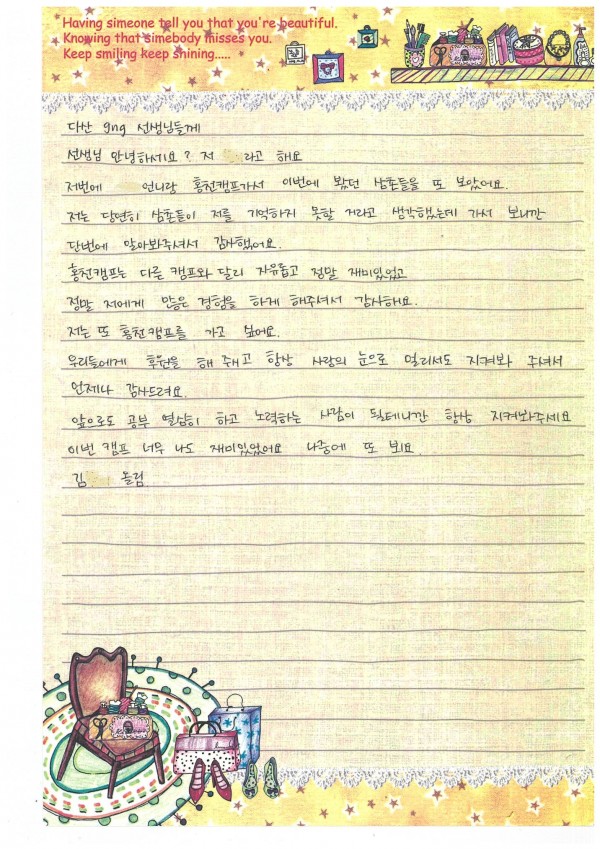 Having simeone tell you that you're beautiful.
Knowing that simebody misses you.
Keep smiling keep shining.....
다산 gng 선생님들께
선생님 안녕하세요? 저 라고 해요
저번에 언니랑 홍천캠프가서 이번에 봤던 삼촌들을 또 보았어요.
저는 당연히 삼촌들이 저를 기억하지 못할 거라고 생각했는데 가서 보니깐
단번에 알아봐주셔서 감사했어요.
홍천캠프는 다른 캠프와 달리 자유롭고 정말 재미있었고
정말 저에게 많은 경험을 하게 해주셔서 감사해요.
저는 또 홍천캠프를 가고 싶어요.
우리들에게 후원을 해 주시고 항상 사랑의 눈으로 멀리서도 지켜봐 주셔서
언제나 감사드려요.
앞으로도 공부 열심히 하고 노력하는 사람이 될테니깐 항상 지켜봐주세요
이번 캠프 너무 나도 재미있었어요 나중에 또 뵈요.
김 올림